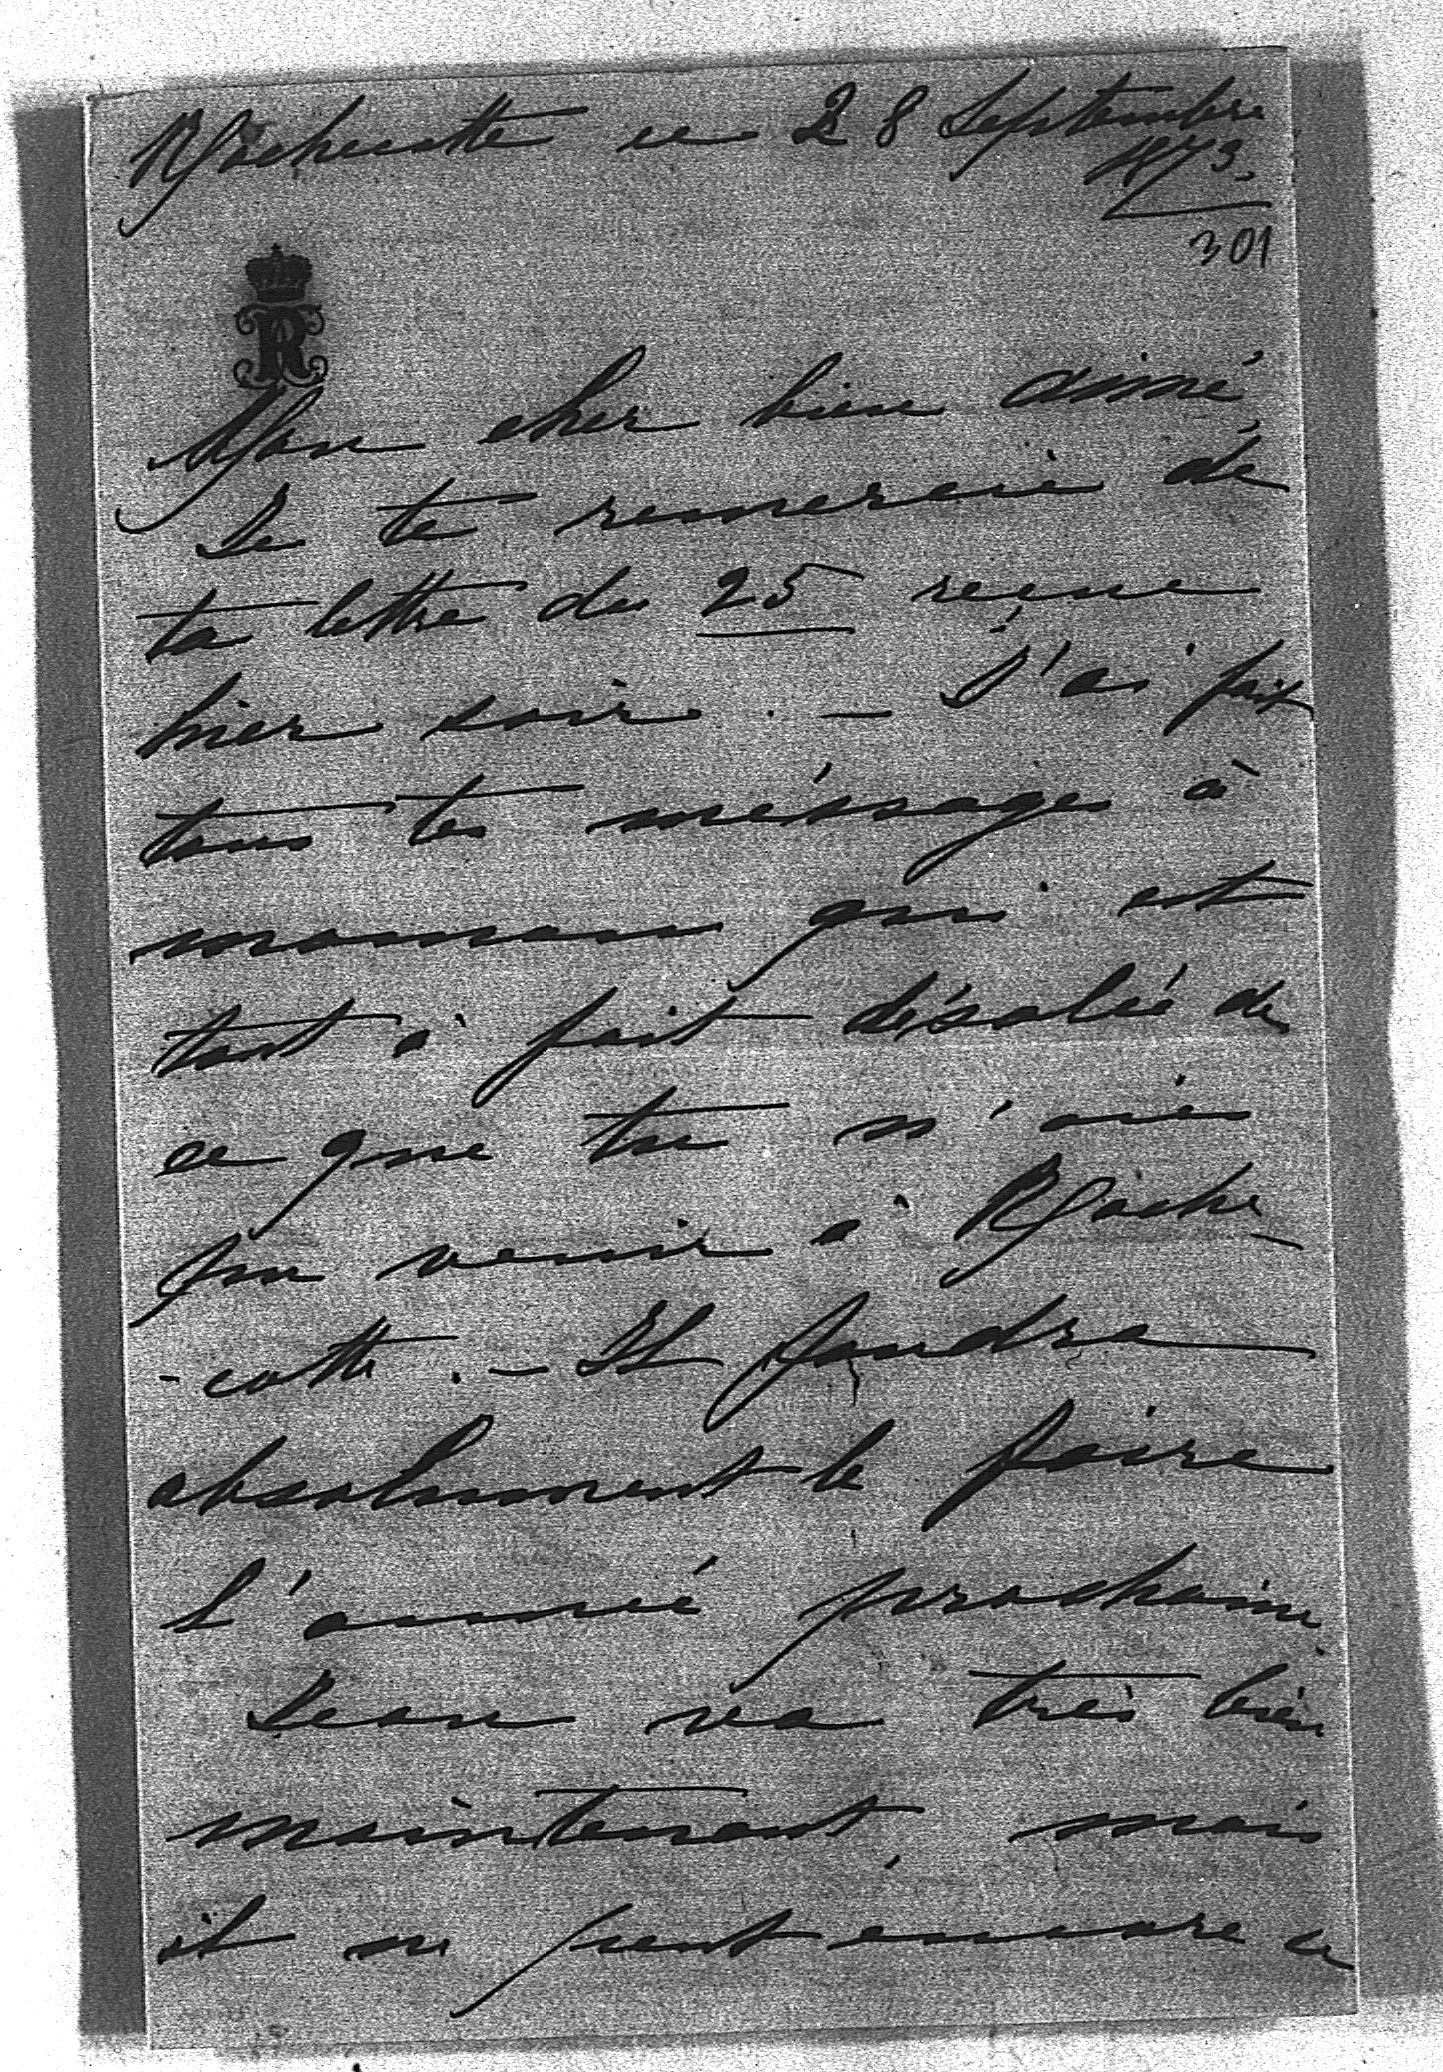 Rochecotte ce 28 Septembre
1873,
301
R
Mon cher bien aimé,
Je te remercie de
ta lettre du 25 reçue
hier soir. — J'ai fait
tous tes méssages à
maman qui est
tout à fait désolée de
ce que tu n'aies
pu venir à Roche-
-cotte. — Il faudra
absolument le faire
l'année prochaine.
Jean va très bien
maintenant, mais
il ne peut encore ce